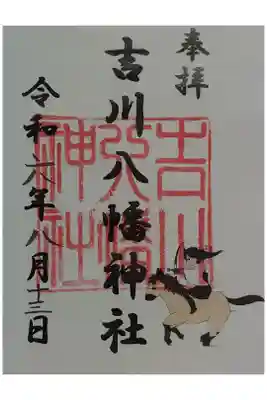 奉拝
吉川八幡神社
吉川
八幡
神社
令和六年八月十三日